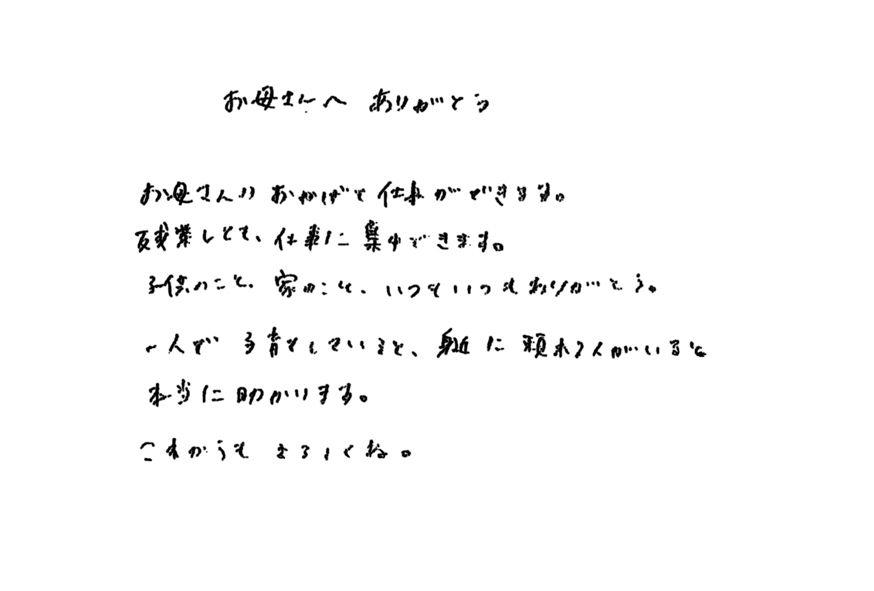 お母さんへ ありがとう
お母さんのおかげで仕事ができます。
残業しても、仕事に集中できます。
子供のこと、家のこと、いつもいつもありがとう。
一人で子育てしていると、身近に頼れる人がいると
本当に助かります。
これからもよろしくね。